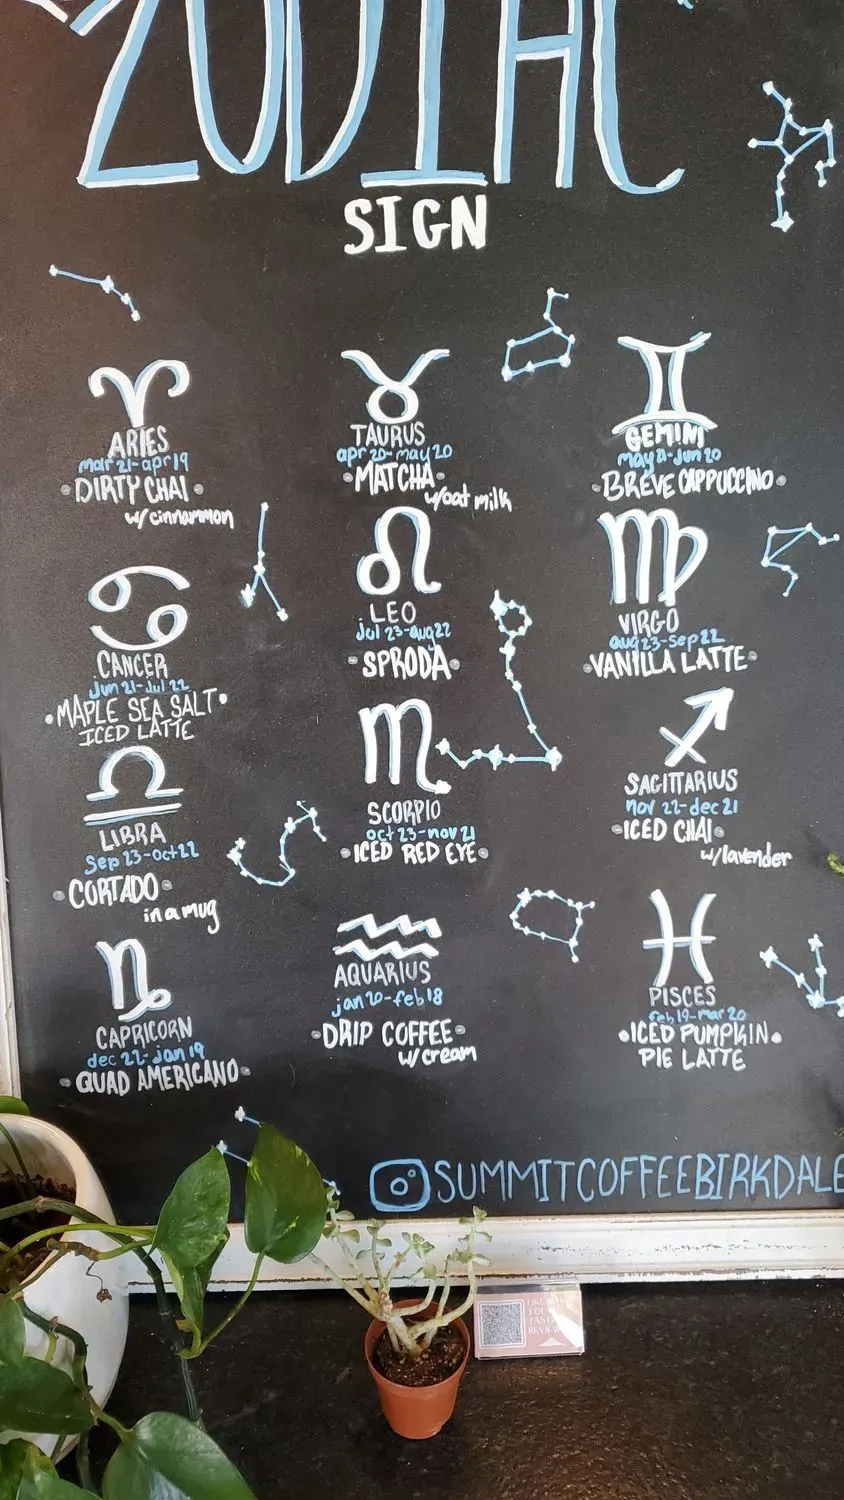 ZODIAC
SIGN
ARIES
mar 21-apr 19
DIRTY CHAI
w/cinnammon
TAURUS
apr 20-may 20
MATCHA
w/oat milk
GEMINI
may 21-jun 20
BREVE CAPPUCCINO
CANCER
jun 21-Jul 22
MAPLE SEA SALT
ICED LATTE
LEO
jul 23-aug 22
SPRODA
VIRGO
aug 23-sep 22
VANILLA LATTE
LIBRA
Sep 23-oct 22
CORTADO
in a mug
SCORPIO
oct 23-nov 21
ICED RED EYE
SAGITTARIUS
nov 22-dec 21
ICED CHAI
w/lavender
CAPRICORN
dec 22-Jan 19
QUAD AMERICANO
AQUARIUS
jan 20-feb 18
DRIP COFFEE
w/cream
PISCES
feb 19-mar 20
ICED PUMPKIN
PIE LATTE
SUMMITCOFFEEBIRKDALE